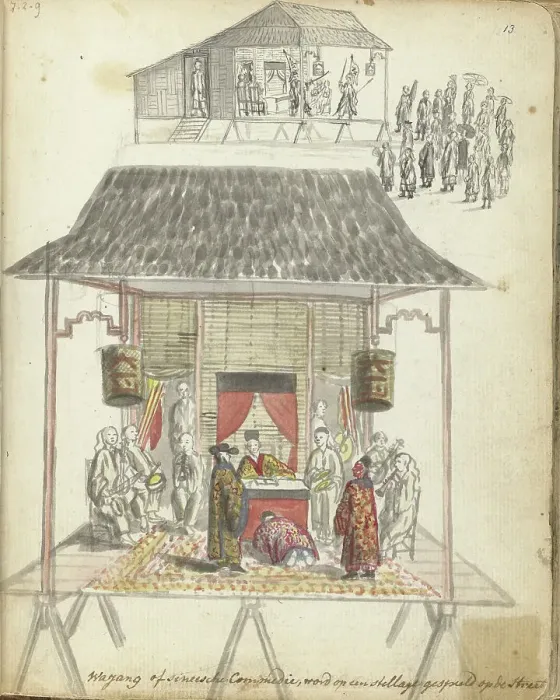 7-2-9
13.
Wayang of sineesche Commedie, word op een stellage gespeeld op de Straet